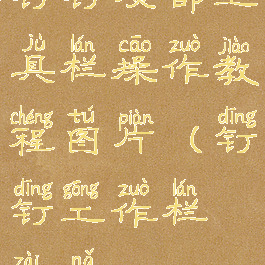 jù lán cāo zuò jiào
具栏操作教
chéng tú piàn dīng
程图片（钉
dīng gōng zuò lán
钉工作栏
zài nǎ